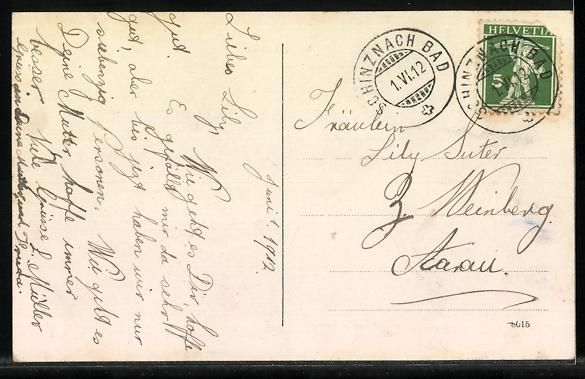 Juni 1. 1912.
Liebes Lily,
Wie geht es Dir hoffe
gut. Es gefällt mir da sehr
gut, aber bis jetzt haben wir nur
siebenzig Personen. Wie geht es
Deine Mutter, hoffe immer
besser. Viele Grüsse L. Müller
Gruss an Deine Mutter und
SCHINZNACH BAD
1.VI.12
HELVETIA
5
SCHINZNACH BAD
Fräulein
Lily Suter
z. Weinberg
Aarau.
8615